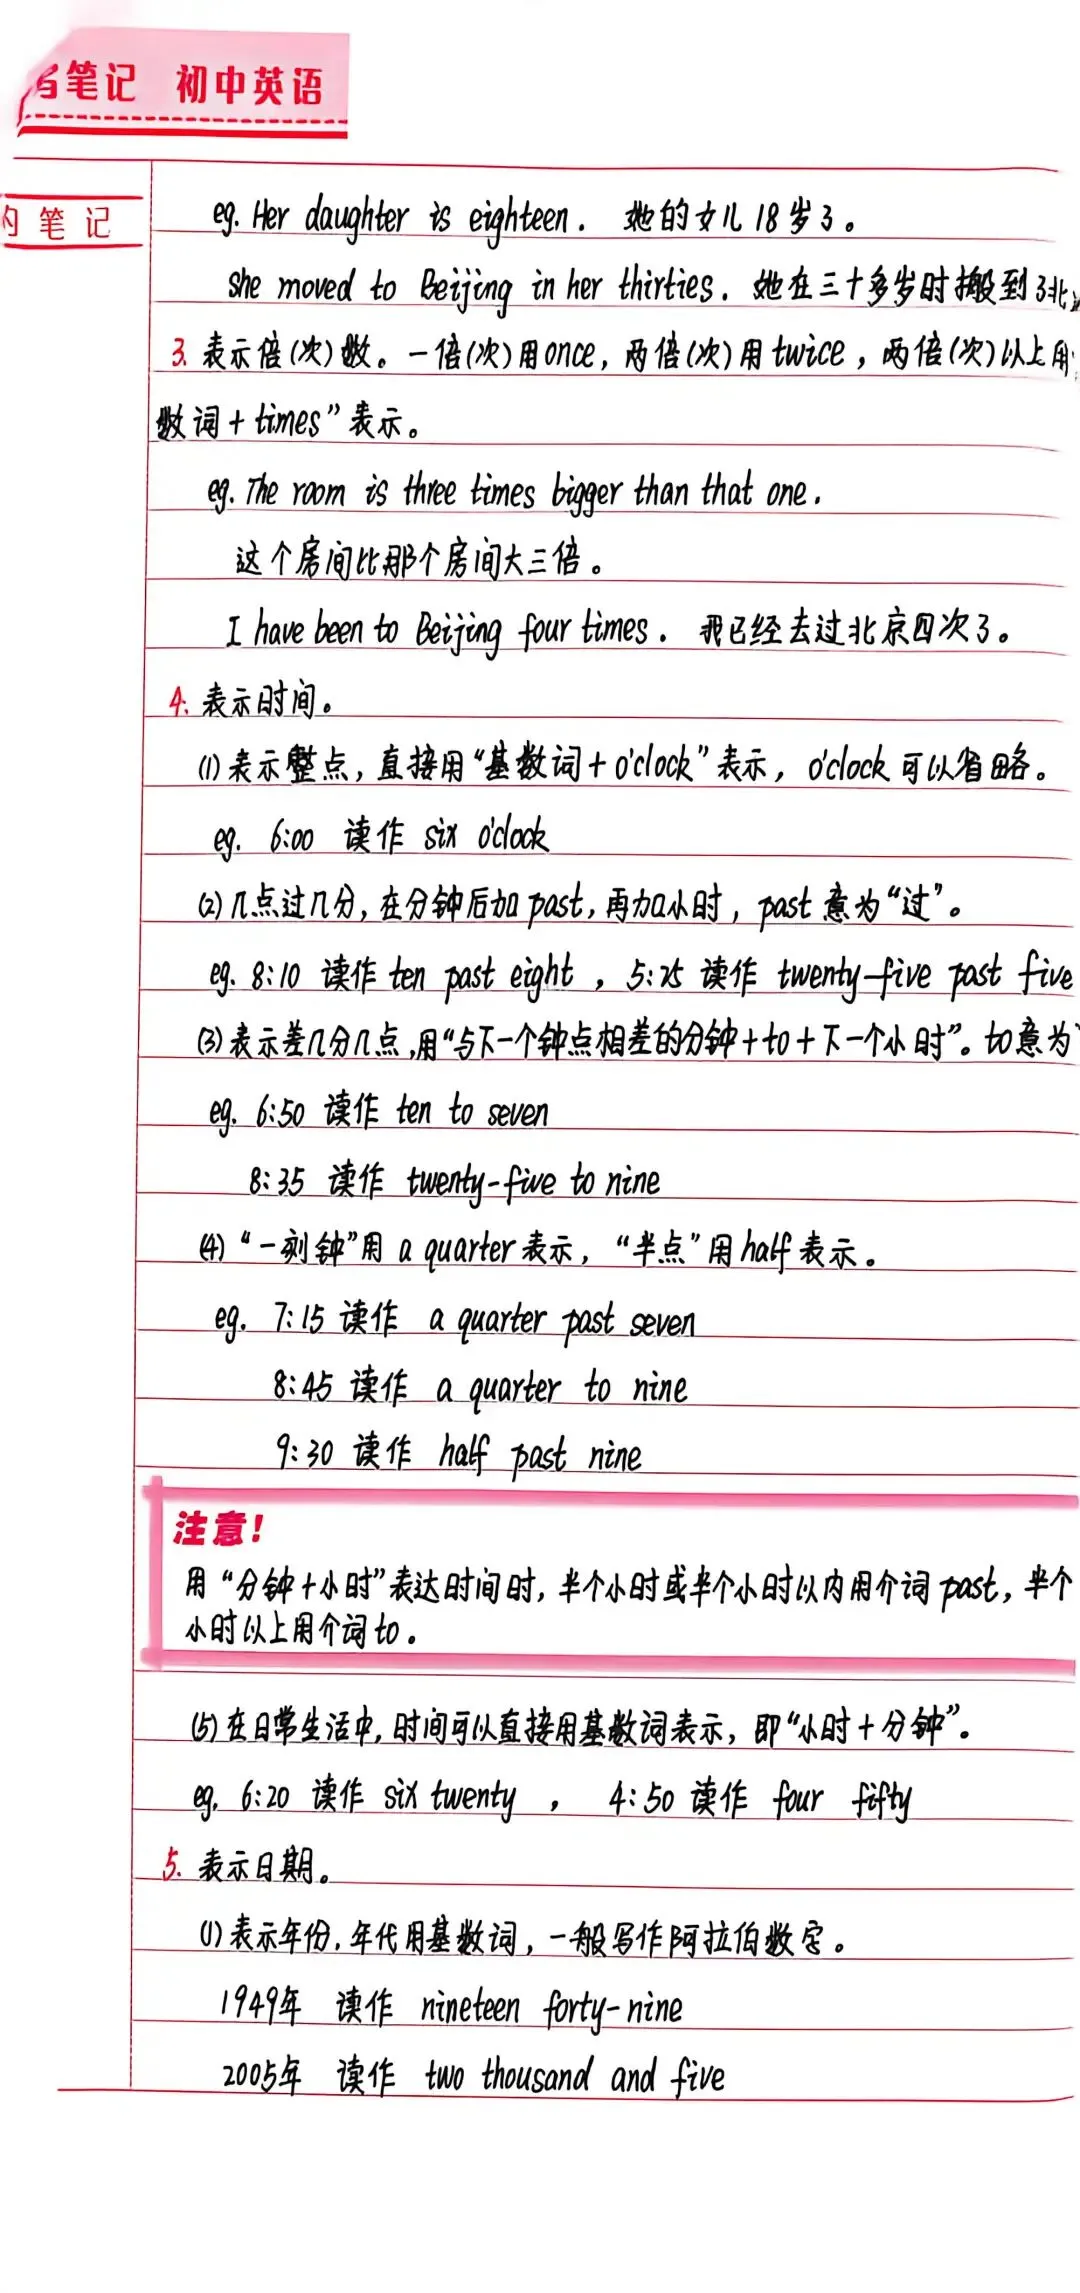 笔记 初中英语
笔记
eg. Her daughter is eighteen. 她的女儿18岁了。
She moved to Beijing in her thirties. 她在三十多岁时搬到了北
3. 表示倍(次)数。一倍(次)用once, 两倍(次)用twice, 两倍(次)以上用
数词+times”表示。
eg. The room is three times bigger than that one.
这个房间比那个房间大三倍。
I have been to Beijing four times. 我已经去过北京四次了。
4. 表示时间。
(1) 表示整点, 直接用“基数词+o'clock”表示, o'clock可以省略。
eg. 6:00 读作 six o'clock
(2) 几点过几分, 在分钟后加past, 再加小时, past意为“过”。
eg. 8:10 读作 ten past eight, 5:25 读作 twenty-five past five
(3) 表示差几分几点,用“与下一个钟点相差的分钟+to+下一个小时”。to意为
eg. 6:50 读作 ten to seven
8:35 读作 twenty-five to nine
(4) “一刻钟”用 a quarter表示, “半点”用half表示。
eg. 7:15 读作 a quarter past seven
8:45 读作 a quarter to nine
9:30 读作 half past nine
注意!
用“分钟+小时”表达时间时, 半个小时或半个小时以内用介词past, 半个
小时以上用介词to。
(5) 在日常生活中, 时间可以直接用基数词表示, 即“小时+分钟”。
eg. 6:20 读作 six twenty, 4:50 读作 four fifty
5. 表示日期。
(1) 表示年份、年代用基数词, 一般写作阿拉伯数字。
1949年 读作 nineteen forty-nine
2005年 读作 two thousand and five